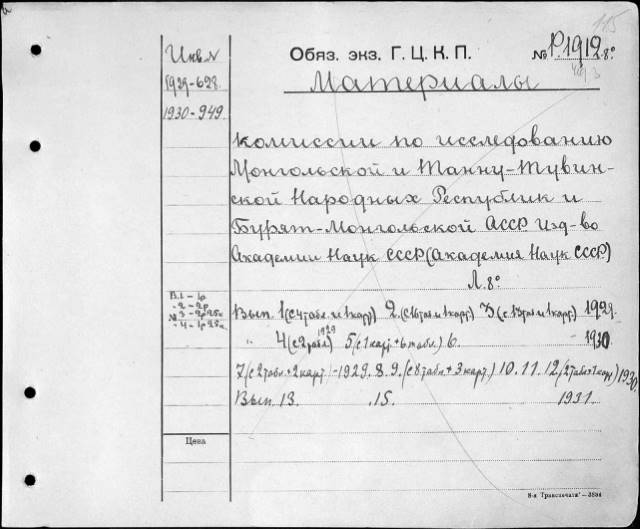 115
Инв. №
1929-628.
1930-949.
Обяз. экз. Г. Ц. К. П.
№ Р.1912.8°
Материалы
комиссии по исследованию
Монгольской и Танну-Тувин-
ской Народных Республик и
Бурят-Монгольской АССР Изд-во
Академии Наук СССР (Академия Наук СССР)
Л. 8°
В.1 - 1р
-2 - 2р
№ 3 - 2р25к
-4 - 1р25к
Вып. 1 (с 4 табл. и 1 карт.) 2. (с 16 табл. и 1 карт.) 3 (с 13 табл. и 1 карт.) 1929.
" 4 (с 2 табл.) 1929 5 (с 1 карт. + 6 табл.) 6. - 1930.
7 (с 2 табл. + 2 карт.) - 1929. 8. 9. (с 8 табл. + 3 карт.) 10. 11. 12. (2 табл. + 1 карт.) 1930.
Вып. 13. .15. 1931.
Цена
8-я "Транспечати" — 3884